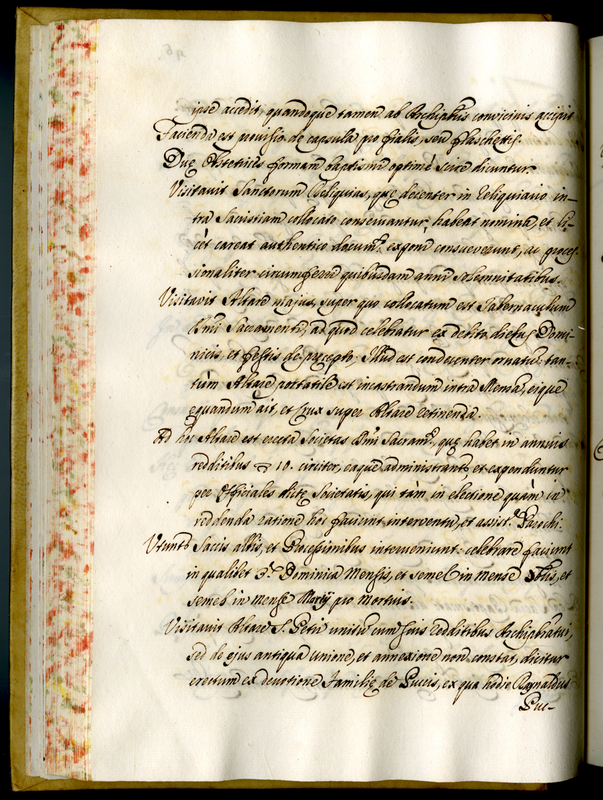 ipse accedit, quandoque tamen ab Archipbris convicinis accipit
Facienda est provisio de capsula pro fialis, seu flaschettis.
Duę Obstetrices formam baptismi optimè scire dicuntur.
Visitavit Sanctorum Reliquias, quę decenter in reliquiario in-
tra Sacristiam collocato conservantur, habent nomina, et li-
cèt careat authentico docum:to exponi consueverunt, ac proces-
sionaliter circumferri quibusdam anni solemnitatibus.
Visitavit Altare majus, super quo collocatum est Tabernaculum
Smi Sacramenti, ad quod celebratur ex debito diebus Domi-
nicis, et festis de pręcepto, Illud est condecenter ornatum, tan-
tùm Altare portatile est incastrandum intra Mensa, eique
ęquandum ait, et Crux super Altare retinenda.
Ad hoc Altare est erecta Societas Smi Sacram:ti, quę habet in annuis
redditibus 10. circiter, eaque administrantur et expenduntur
per Officiales dictę Societatis, qui tàm in electione quàm in
reddenda ratione hoc faciunt interventu, et assist:a Parochi.
Utuntr Saccis albis, et Processionibus interveniunt celebrare faciunt
in qualibet 3.a Dominica Mensis, et semel in mense 9bris, et
semel in mense Martij pro Mortuis.
Visitavit Altare S. Petri unitum cum suis redditibus Archiprbatui,
sed de ejus antiqua unione, et annexione non constat, dicitur
erectum ex devotione Familię de Puccis, ex qua hodie Raynaldus
Puc-